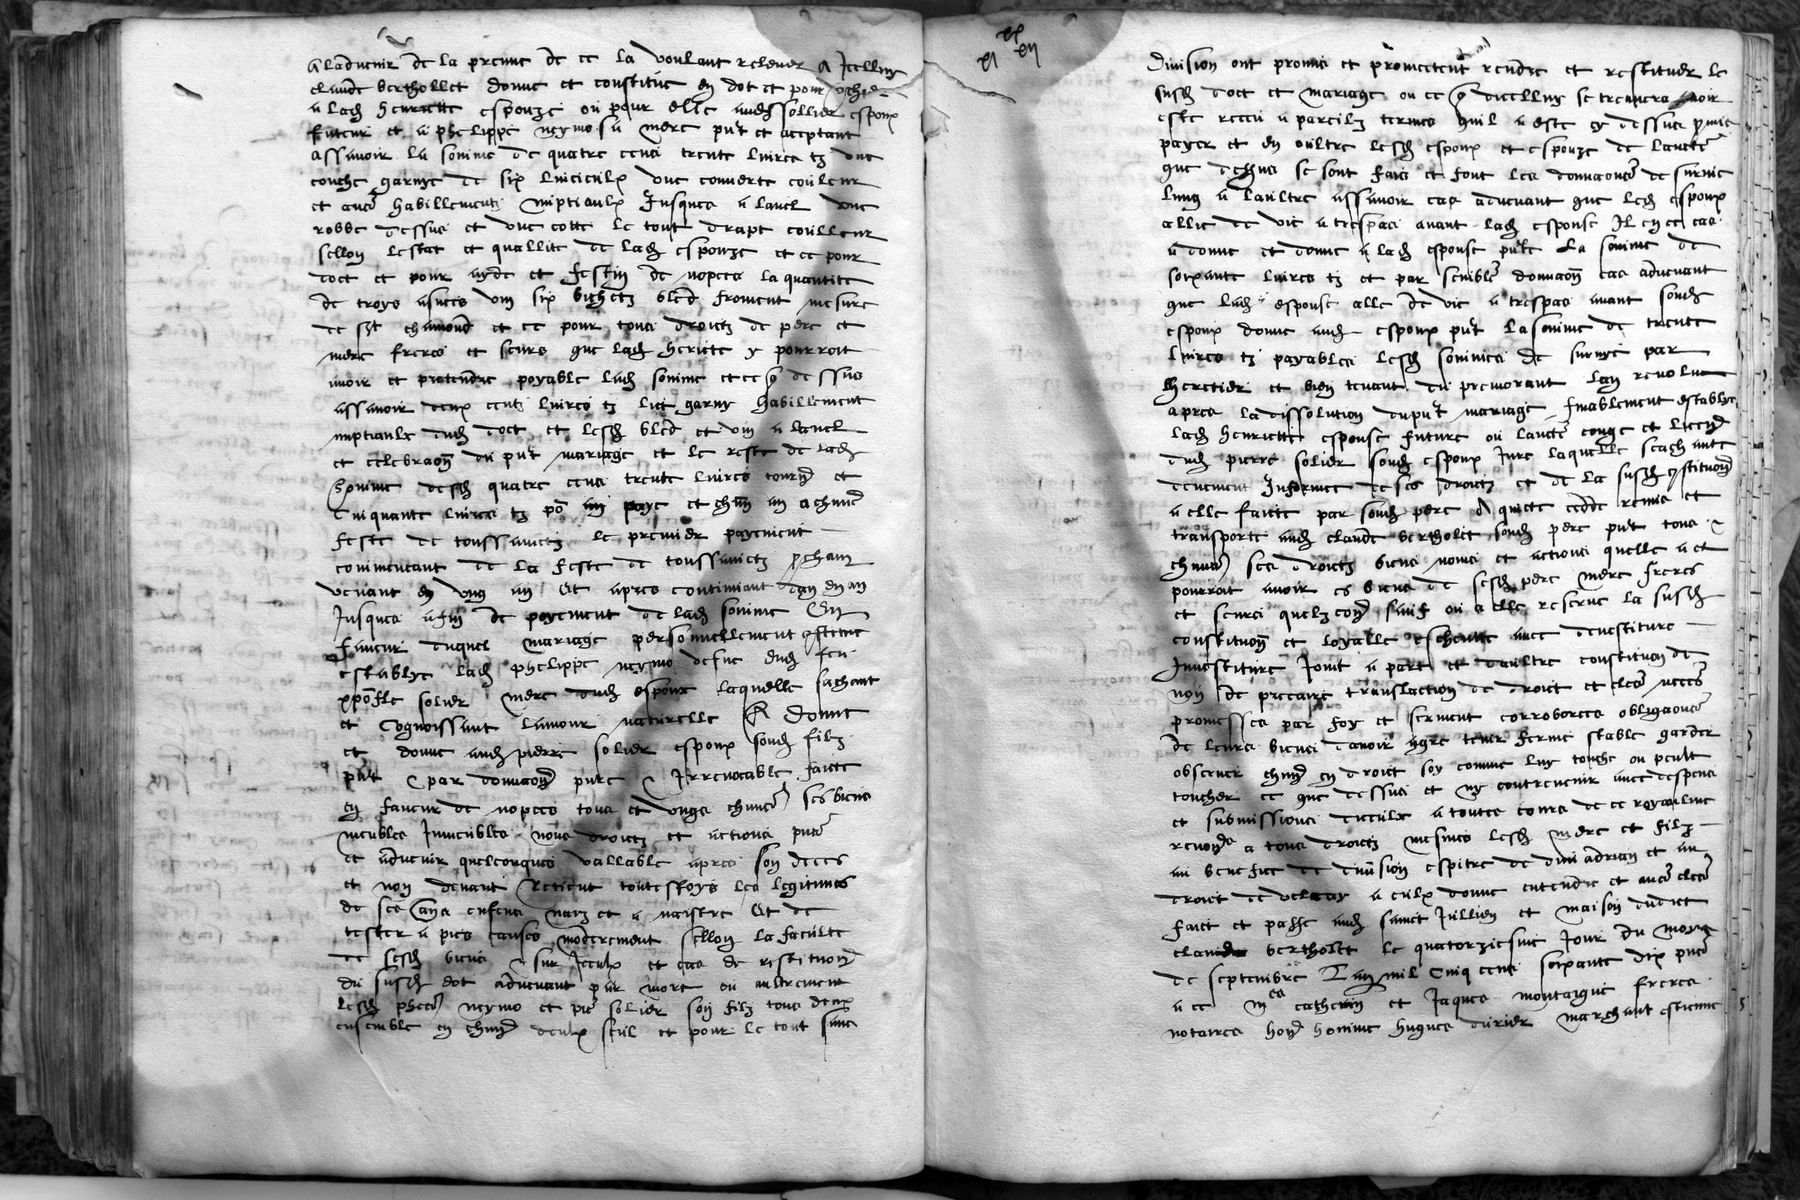 a ladvenir de la preuve de ce la voulant relever A Icelluy
claude berthollet donne et constitue en dot et pour
a lad henriette espouze ou pour elle aud sollier espoux
futeur et a phelippe neymo sa mere pnt et acceptant
assavoir la somme de quatre cens trente livres tz une
couche garnye de six linceulx une couverte couleur
et aues habillements nuptiaulx Jusques a lauel une
robbe dessus et une cotte le tout drapt coulleur
sellon lestat et quallite de lad espouze et ce pour
doct et pour ayde et festin de nopces la quantite
de troys asnees vin six bichetz bled froment mesure
de st chamond et ce pour tous droictz de pere et
mere freres et seurs que lad heriete y pourroit
avoir et pretendre poyable lad somme et ce q dessus
assavoir deux centz livres tz lict garny habillement
nuptiaulx dud doct et lesd bled et vin a lauel
et celebraon du pnt mariage et le reste de lad
somme desd quatre cens trente livres tourn et
Cinquante livres tz po paye et chun an a chune
feste de toussainctz le premier payement
commencant de la feste de toussainctz pcham
venant en ung an Et apres continuant dan en an
Jusques a fin de poyement de lad somme En
faveur duquel mariage personnellement
establye lad phelippe neymo vefve dud feu
xpofle solier mere dud espoux laquelle sachant
et Cognoissant lamour naturelle A donne
et donne aud pierre solier espoux sond filz
pnt par donnaon pure Irrevocable faicte
en faveur de nopces tous et ungs chuns ses biens
meubles Immeubles noms droictz et actions pns
et advenir quelconques vallable apres son deces
et non devant Retient toutesfoys les legitimes
de ses ans enfens naiz et a naistre Et de
tester a pies causes moderement sellon la faculte
de sesd biens sur Iceulx et cas de restituon
du susd dot advenant par mort ou aultrement
lesd phes neymo et pre solier son filz tous deux
ensemble en chun deulx seul et pour le tout sans
division ont promis et promectent rendre et restituer le
susd doct et mariage ou ce q dicelluy se trouvera avoir
este receu a pareilz termes quil a este cy dessus pmis
payer et en oultre lesd espoux et espouze de laucte
que dessus se sont fais et font les donnaons de survie
lung a laultre assavoir cas advenant que led espoux
allie de vie a trespas avant lad espouse Il en ce cas
a donne et donne a lad espouse pnte La somme de
soixante livres tz et par semble donnaon cas advenant
que lad espouse alle de vie a trespas avant sond
espoux donne aud espoux pnt la somme de trente
livres tz payables lesd sommes de survye par
heretier et bien tenant du premorant lan revolu
apres la dissolution dupnt mariage finablement establye
lad henriette espouse future ou laucte conge et licence
dud pierre solier sond espoux Jure laquelle scachante
deuement Informee de ses droictz et de la susd cstituon
a elle faicte par sond pere A quicte cedde remis et
transporte aud claude bertholet sond pere pnt tous
chuns ses droictz biens noms et actions quelle a et
pourroit avoir es biens de sesd pere mere freres
et seurs quelz con sauf ou a elle reserve la susd
constituon et loyalle escheutte avec devestiture
Investiture Joint a part et daultre constituon de
non de precaire translaction de droict et cles necess
promesses par foy et serment corroborees obligaons
de leurs biens davoir agre tenir ferme stable garder
observer chun en droict soy comme luy touche ou peult
toucher ce que dessus et ny contrevenir avec despens
et submissions diceulx a toutes cours de ce royaulme
renon a tous droictz mesmes lesd mere et filz
au benefice de division espitre de divi adrian et au
droict de a eulx donne entendre et aues cles
faict et passe aud sainct Jullien et maison dudict
claude bertholet le quatorziesme Jour du moys
de septembre Lan mil Cinq cens soixante dix pns
a ce mes catherin et Jaques montaigue freres
notaires hon homme hugues durier marchant estienne